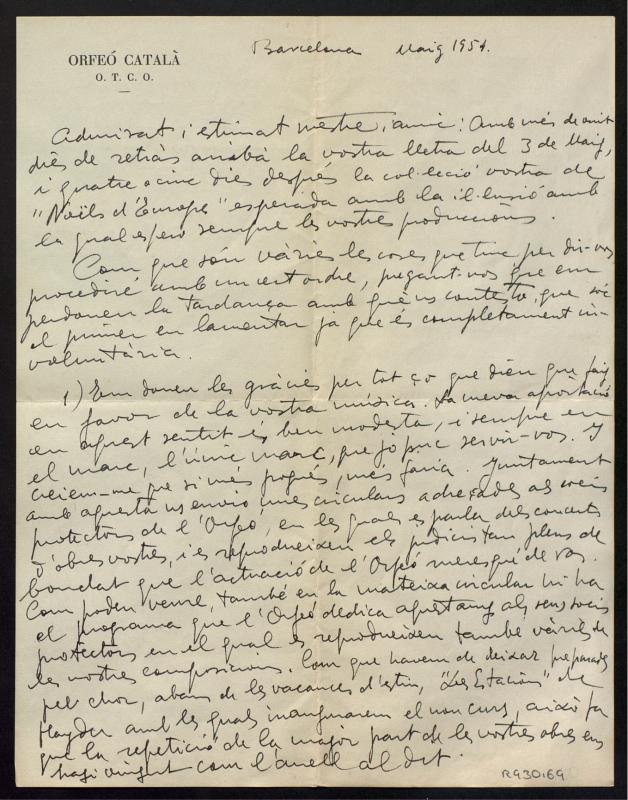 ORFEÓ CATALÀ
O. T. C. O.
Barcelona Maig 1954.
Admirat i estimat mestre i amic: Amb més de vuit
diès de retràs arribà la vostra lletra del 3 de Maig,
i quatre o cinc dies després la col·lecció vostra de
"Noëls d'Europe" esperada amb la il·lusió amb
la qual espero sempre les vostres produccions.
Com que són vàries les coses que tinc per dir-vos
procediré amb un cert ordre, pregant-vos que em
perdoneu la tardança amb què us contesto, que sóc
el primer en lamentar ja que és completament in-
voluntària.
1) Em doneu les gràcies per tot ço que dieu que faig
en favor de la vostra música. La meva aportació
en aquest sentit és ben modesta, i sempre en
el marc, l'únic marc, que jo puc servir-vos. I
creiem-me que si més pogués, més faria. Juntament
amb aquesta us envio unes circulars adreçades als socis
protectors de l'Orfeó, en les quals es parla dels concerts
d'obres vostres, i es reprodueixen els judicis tan plens de
bondat que l'actuació de l'Orfeó meresqué de vos.
Com podeu veure, també en la mateixa circular hi ha
el programa que l'Orfeó dedica aquest any als seus socis
protectors en el qual es reprodueixen també vàries de
les vostres composicions. Com que havem de deixar preparades
pel chor, abans de les vacances d'estiu, "Les Estacions" de
Haydn amb les quals inaugurarem el nou curs, això fa
que la repetició de la major part de les vostres obres ens
hagi vingut com l'anell al dit.
R930169